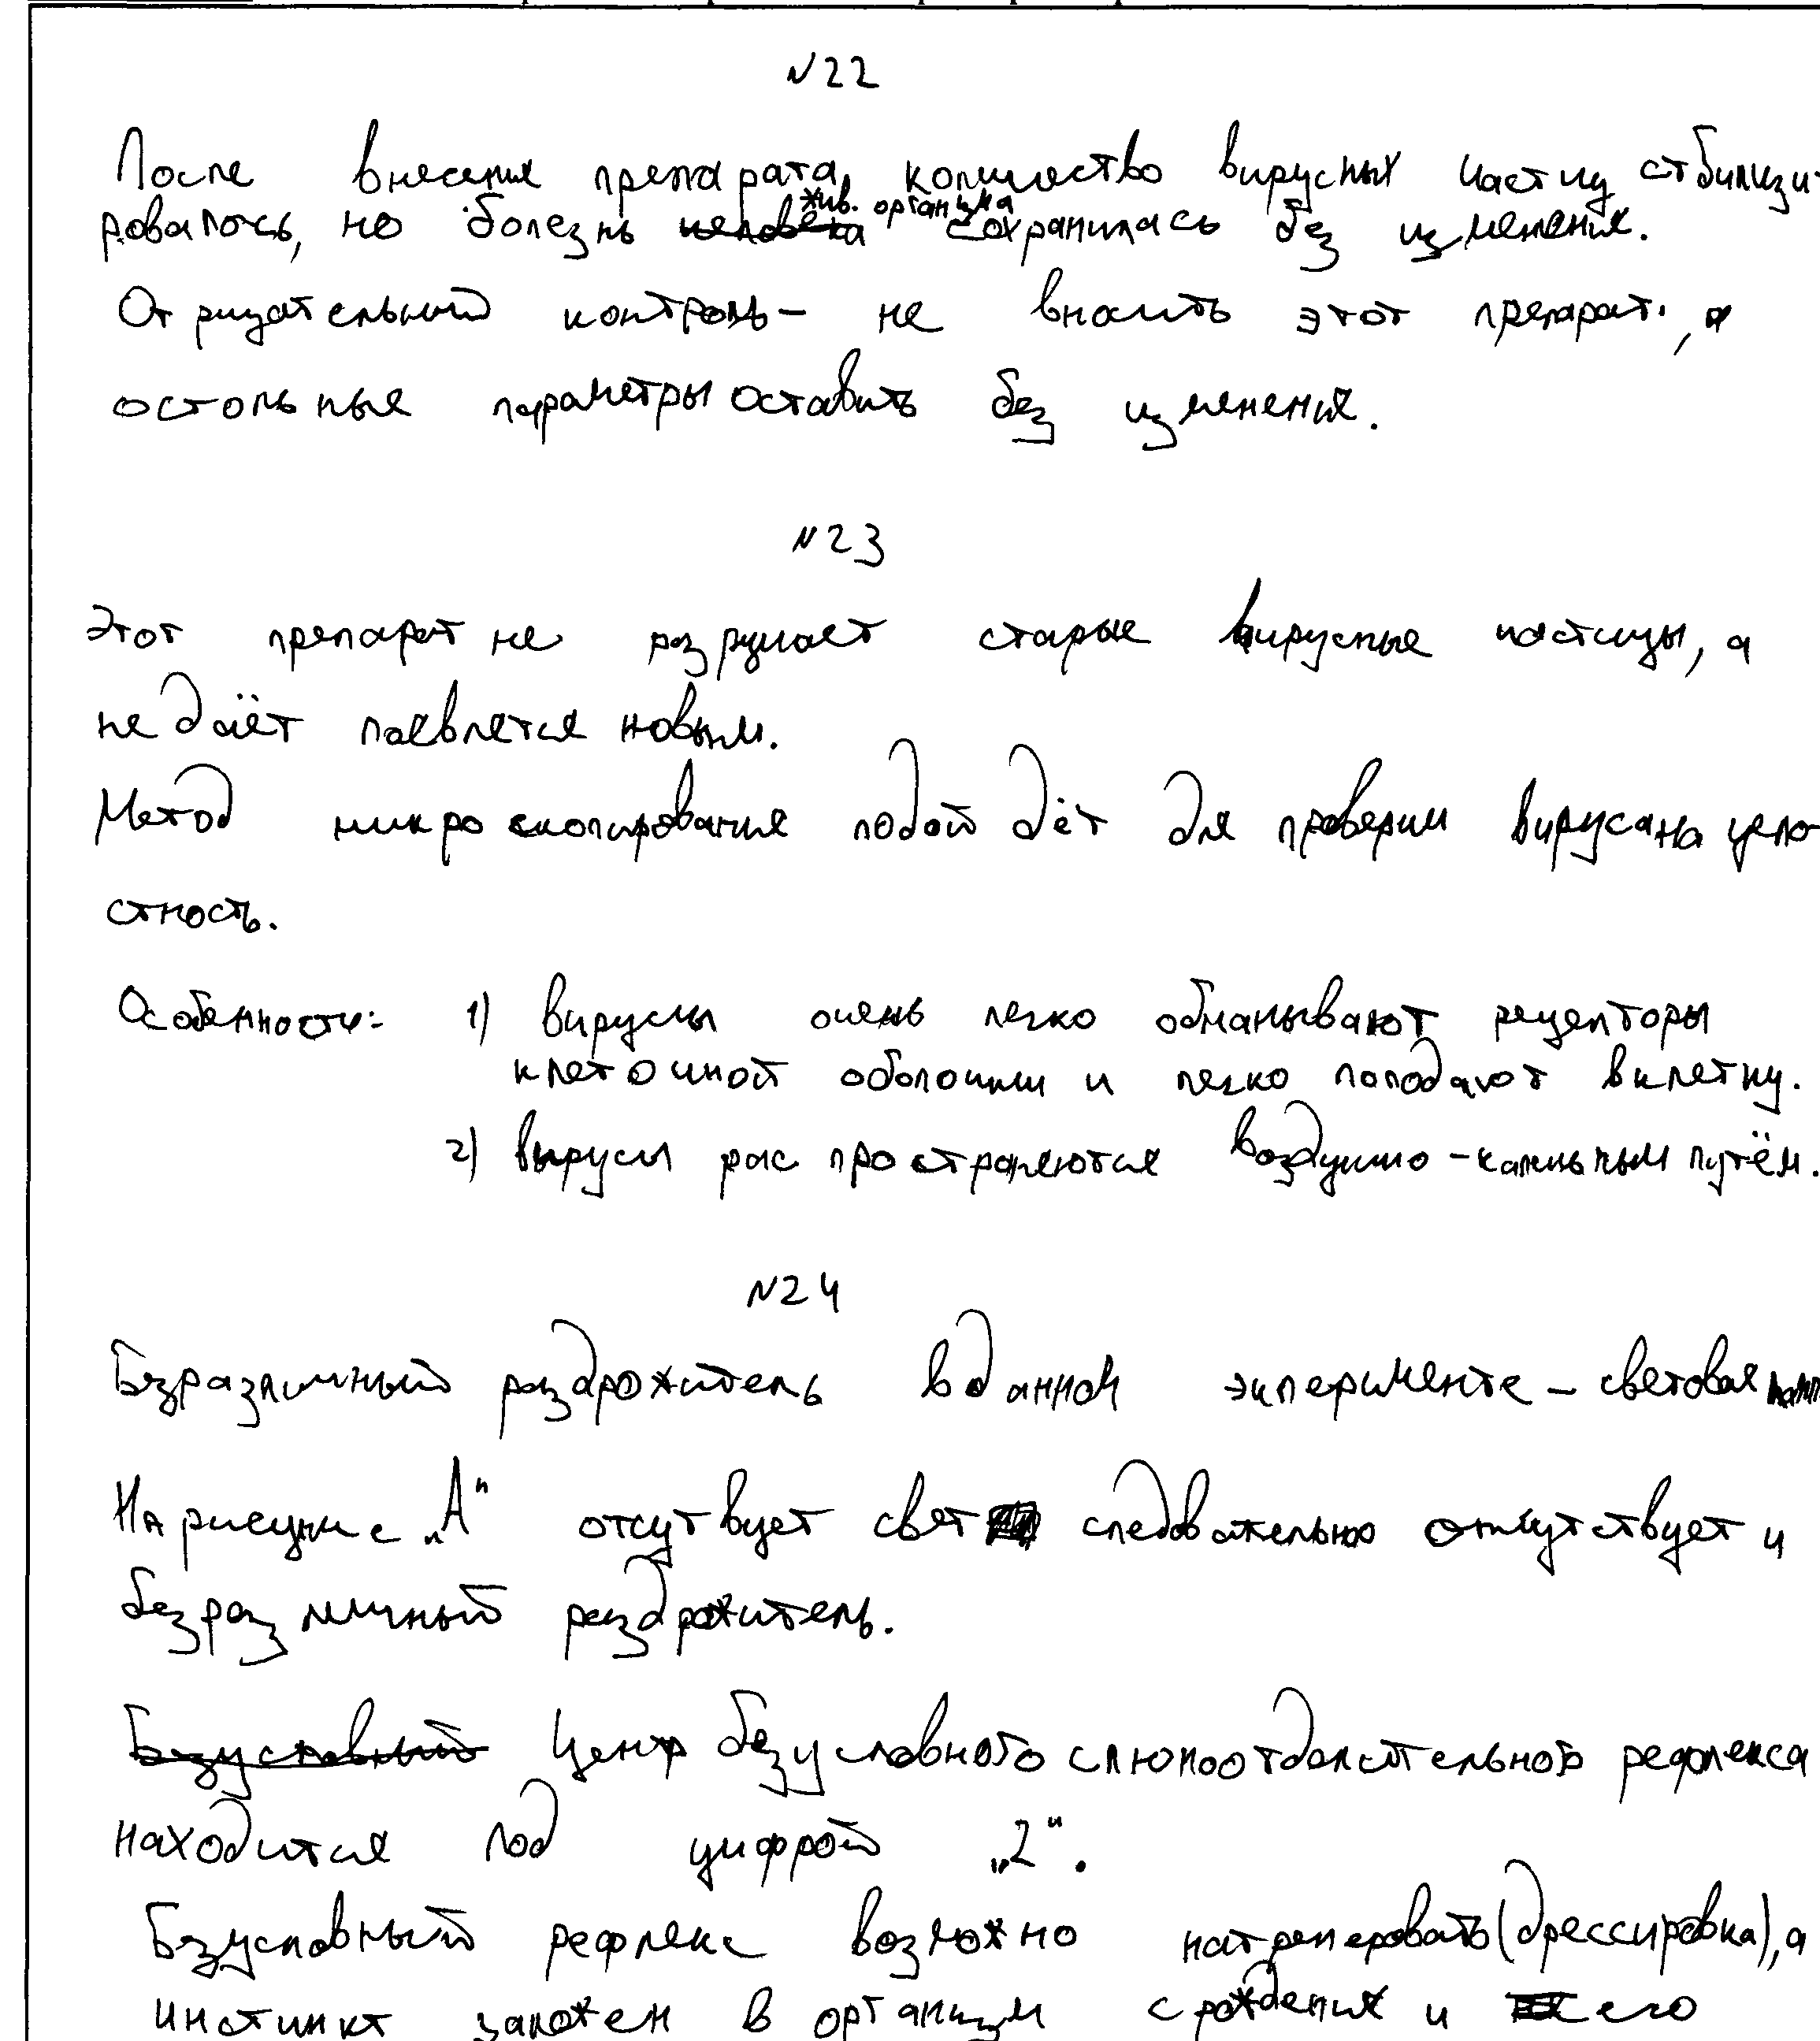 №22
После внесения препарата, количество вирусных частиц стбилизи-
жив. организма
ровалось, но болезнь человека сохранилась без изменения.
Отрицательный контроль - не вносить этот препарат, а
остольные параметры оставить без изменения.
№23
Этот препарат не разрушает старые вирусные частицы, а
не даёт паявлется новым.
Метод микроскопирования подойдёт для проверки вируса на цело-
стность.
Особенности: 1) вирусы очень легко обманывают рецепторы
клеточной оболочки и легко пападают в клетку.
2) вирусы распростроняются воздушно-капельным путём.
№24
Безразличный раздрожитель в данном эксперименте - световая
На рисунке „А" отсутвует свет следовательно отсутствует и
безразличный раздрожитель.
Безусловный Центр безусловного слюноотделительного рефлекса
находится под цифрой „2".
Безусловный рефлекс возможно натренеровать (дрессировка), а
инстинкт заложен в организм с рождения и его